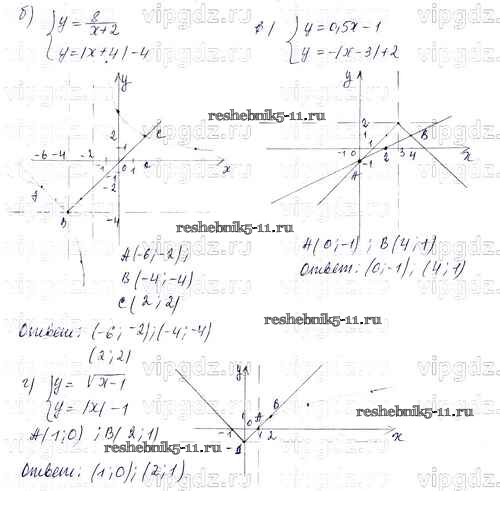 б) { y = 8/(x+2)
y = |x+4| - 4
в) { y = 0,5x - 1
y = -|x-3| + 2
y
reshebnik5-11.ru
2 C
-6 -4 -2 1
0 1 x
-1
-2
A
B
-4
y
2
1
-1 0 2 3 4 x
A -1
B
reshebnik5-11.ru
A(-6;-2);
B(-4;-4)
C(2;2)
A(0;-1); B(4;1)
Ответ: (0;-1); (4;1)
Ответ: (-6;-2);(-4;-4)
(2;2)
reshebnik5-11.ru
г) { y = √x-1
y = |x| - 1
A(1;0); B(2;1)
Ответ: (1;0); (2;1).
y
A B
-1 0 1 2 x
reshebnik5-11.ru
reshebnik5-11.ru
vipgdz.ru